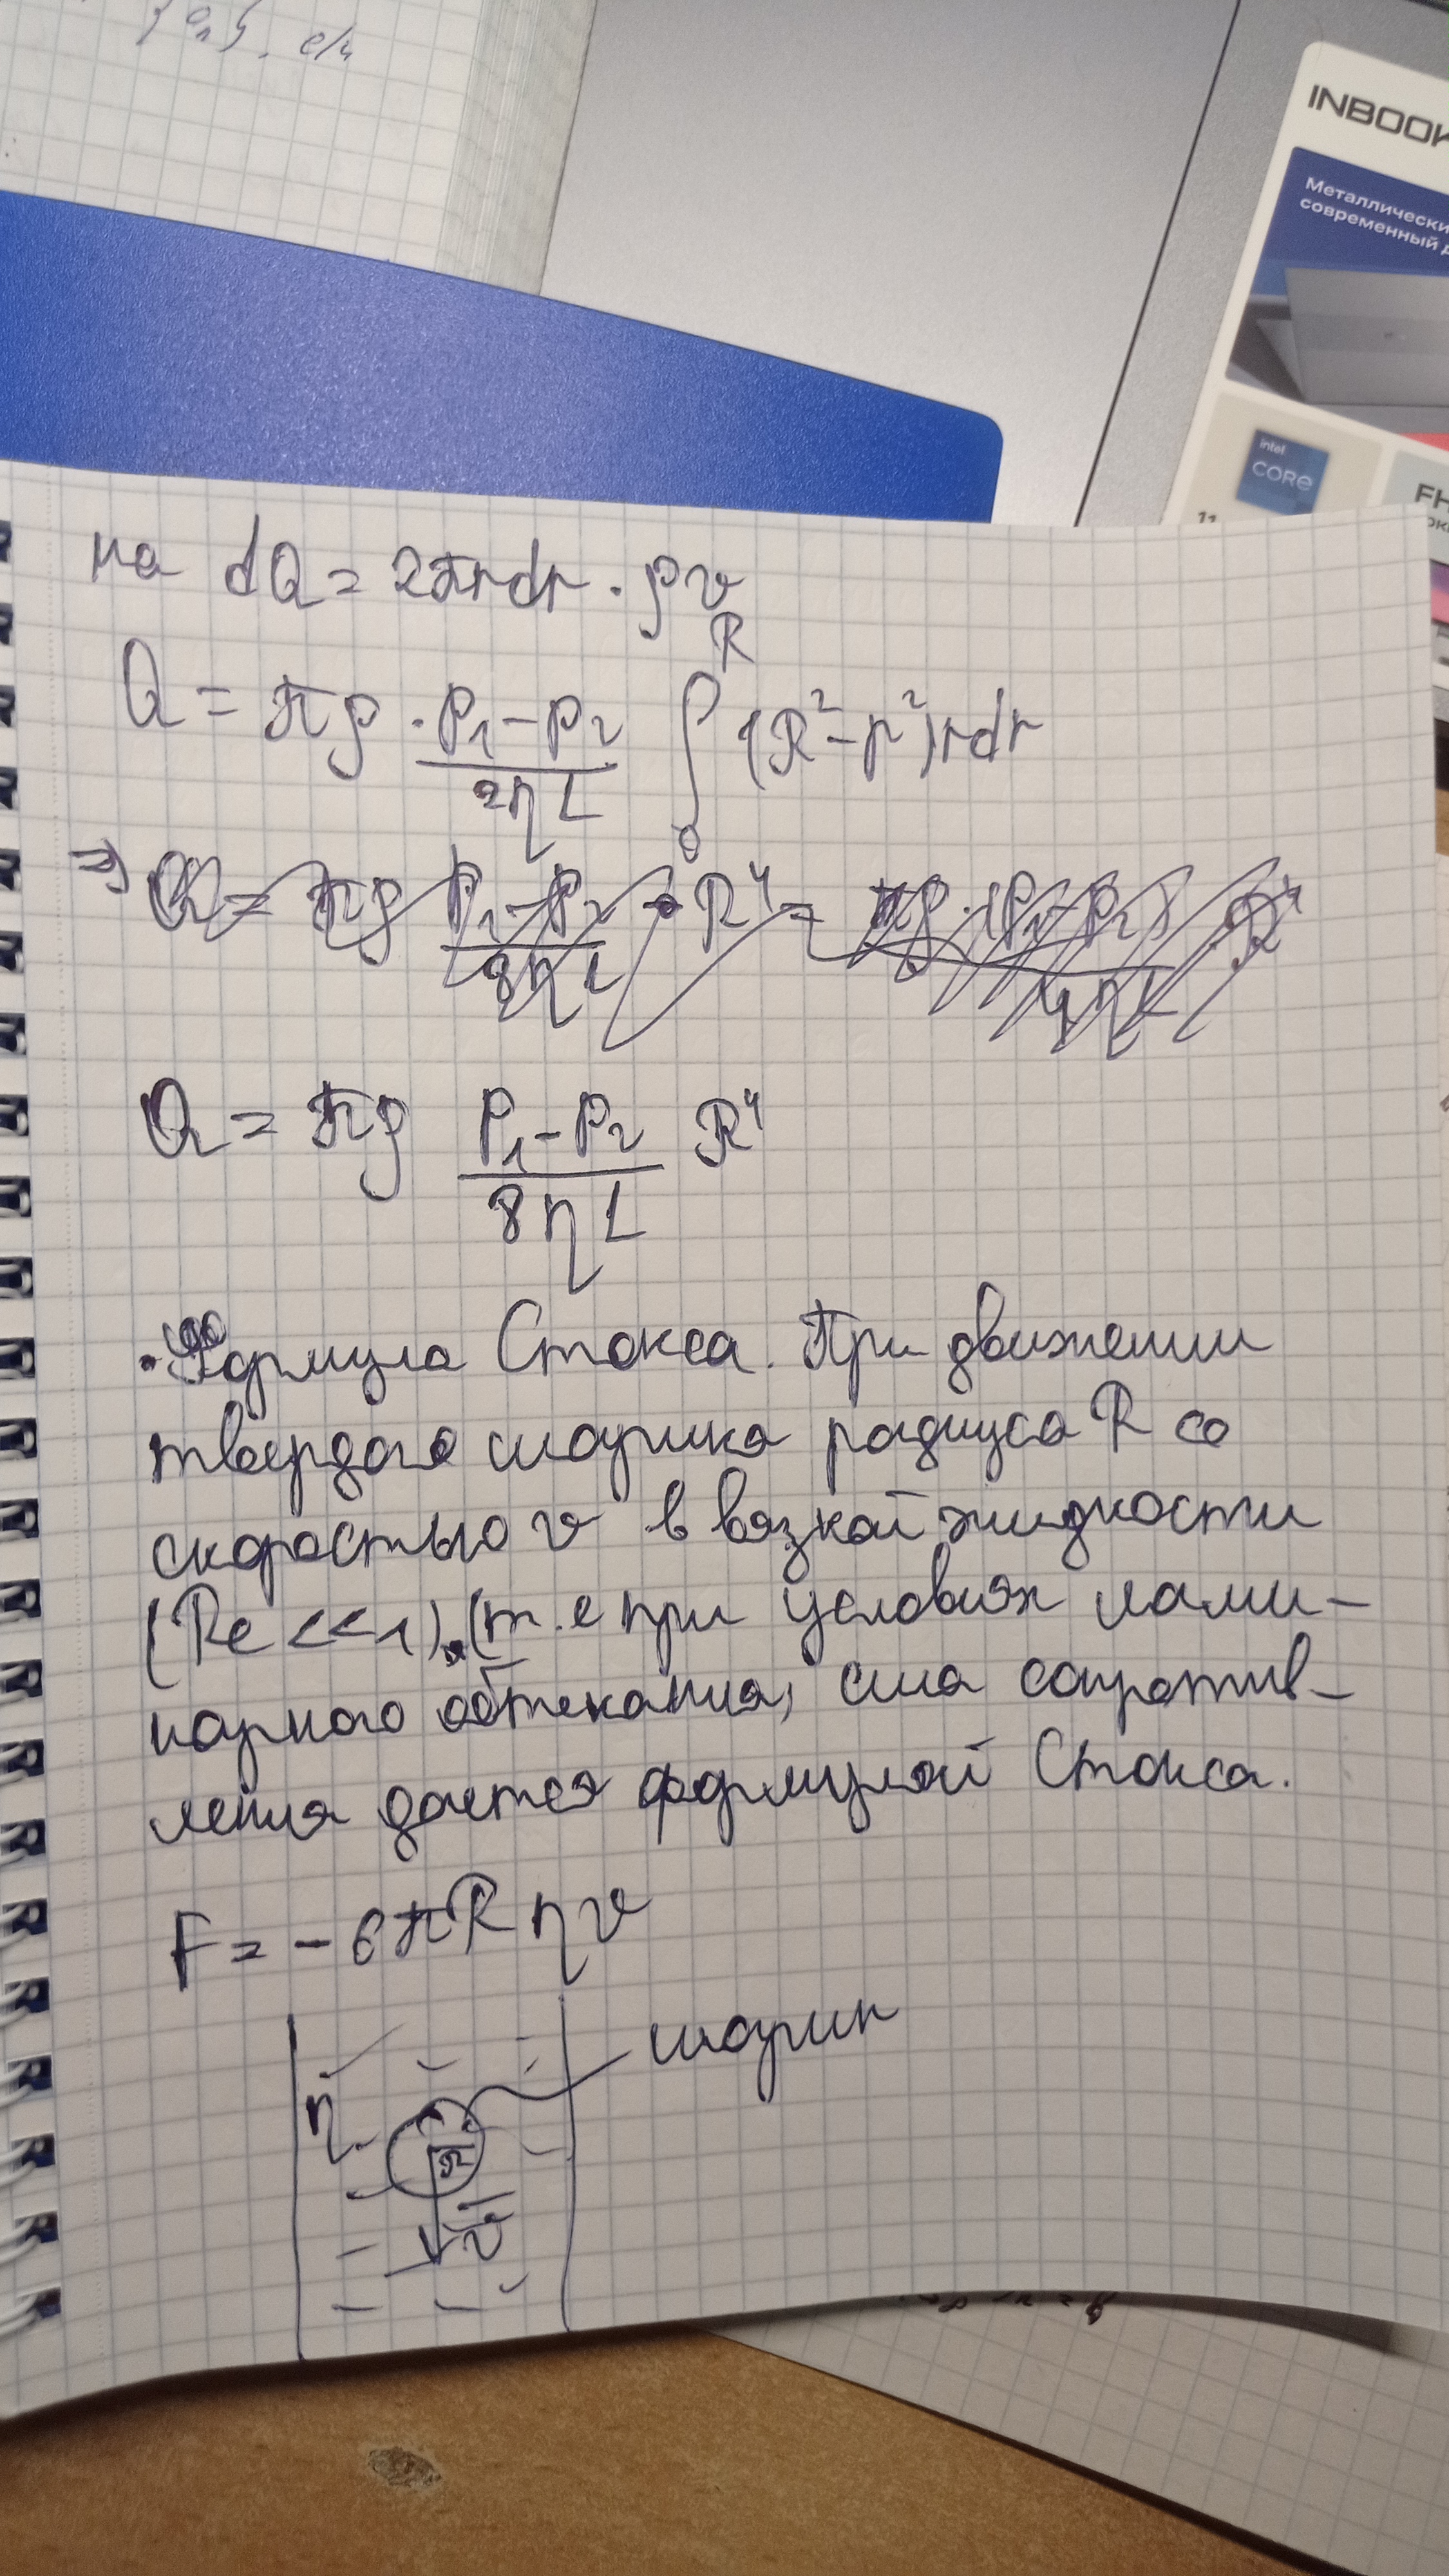 INBOOK
Металлически
современный д
intel
CORe
11
FH
на dQ = 2πrdr · ρv
Q = πρ · (p₁-p₂)/(2ηL) ∫₀ᴿ (R²-r²)rdr
Q = πρ (p₁-p₂)/(8ηL) R⁴
· Формула Стокса. При движении
твердого шарика радиуса R со
скоростью v в вязкой жидкости
(Re <<1), (т.е при условиях лами-
нарного обтекания, сила сопротив-
ления дается формулой Стокса.
F = - 6πRηv
шарик
η
R
v̅